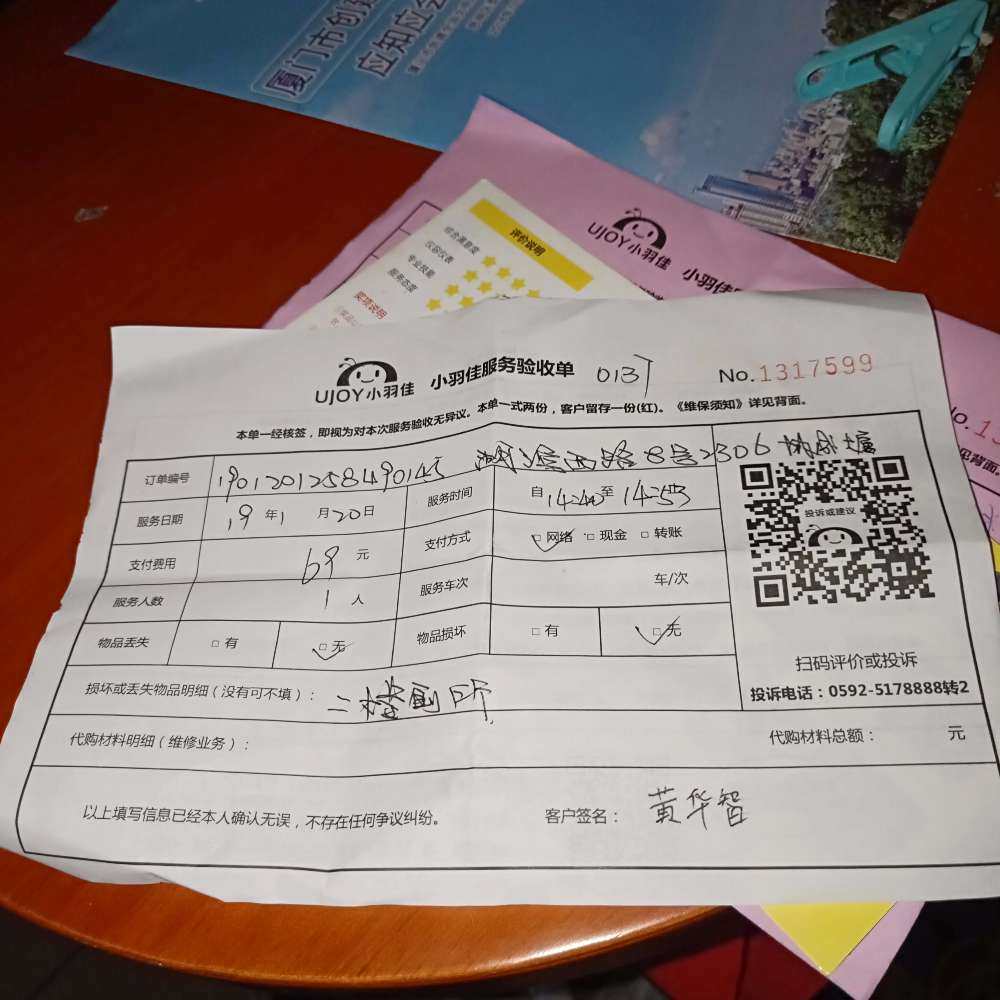 厦门市创建
应知应会
评价说明
综合满意度
仪容仪表
专业技能
服务态度
奖项说明
UJOY小羽佳 小羽佳服
UJOY小羽佳 小羽佳服务验收单 No.1317599
本单一经核签，即视为对本次服务验收无异议。本单一式两份，客户留存一份(红)。《维保须知》详见背面。
订单编号 190120125849014 西路8号2306
服务日期 19年1月20日 服务时间 自14:40至14:53
支付费用 69元 支付方式 □网络 □现金 □转账
服务人数 1人 服务车次 车/次
物品丢失 □有 □无 物品损坏 □有 □无
投诉或建议
扫码评价或投诉
投诉电话：0592-5178888转2
损坏或丢失物品明细（没有可不填）： 二楼厕所
代购材料明细（维修业务）： 代购材料总额： 元
以上填写信息已经本人确认无误，不存在任何争议纠纷。 客户签名： 黄华智